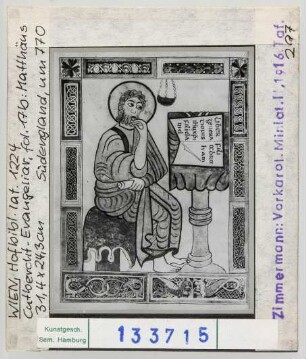 WIEN, Hofbibl. lat. 1224
Cutbercht-Evangeliar, fol. 17b: Matthäus
31,4 x 24,3 cm    Südengland, um 770
Zimmermann: Vorkarol. Miniat. I, 1916, Taf.
297
Kunstgesch.
Sem. Hamburg
133715